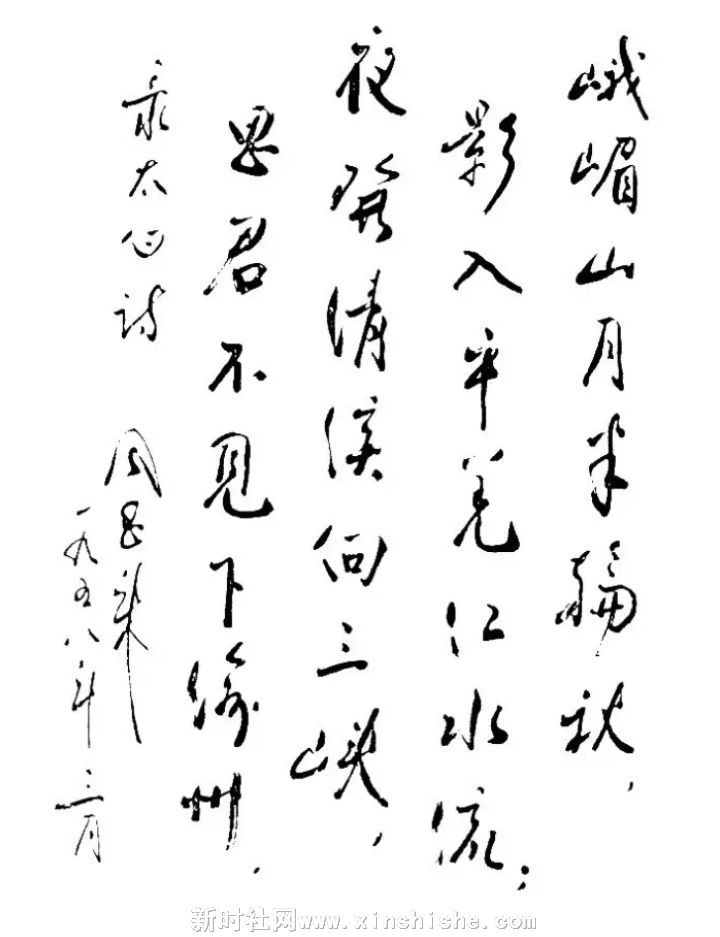 峨嵋山月半輪秋，
影入平羌江水流；
夜發清溪向三峽，
思君不見下渝州．
录太白诗
一九五八年三月
新时社网www.xinshishe.com